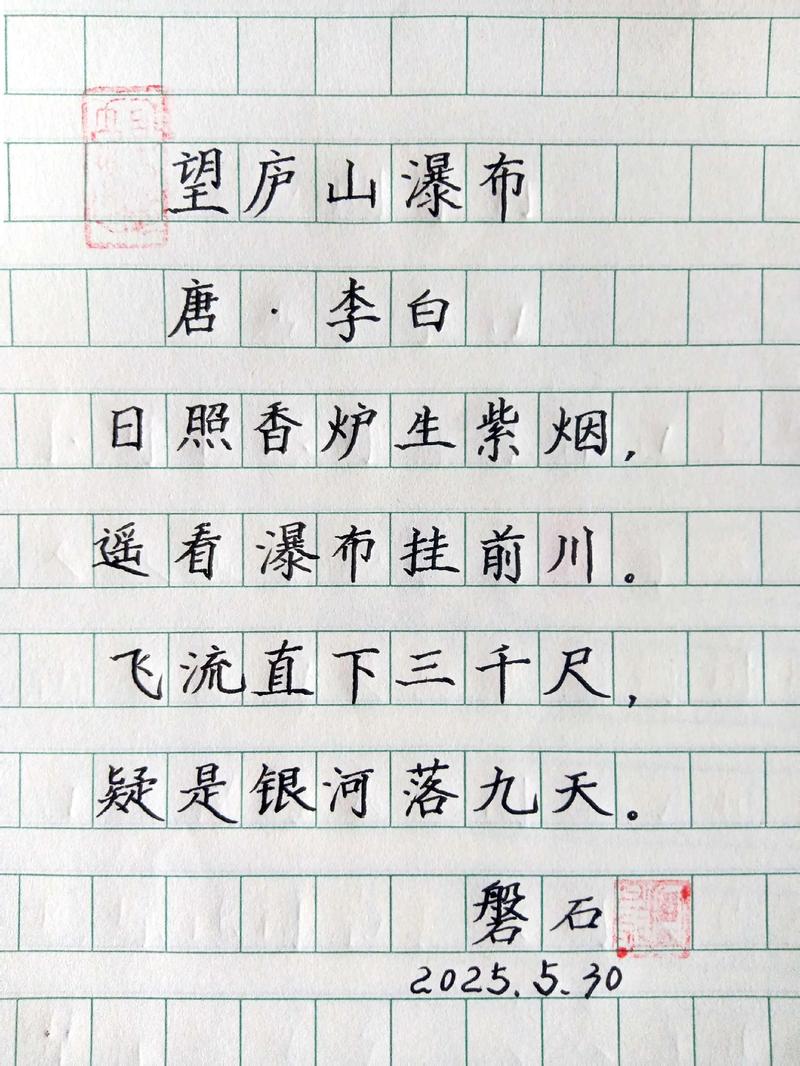 望庐山瀑布
唐·李白
日照香炉生紫烟，
遥看瀑布挂前川。
飞流直下三千尺，
疑是银河落九天。
磐石
2025.5.30